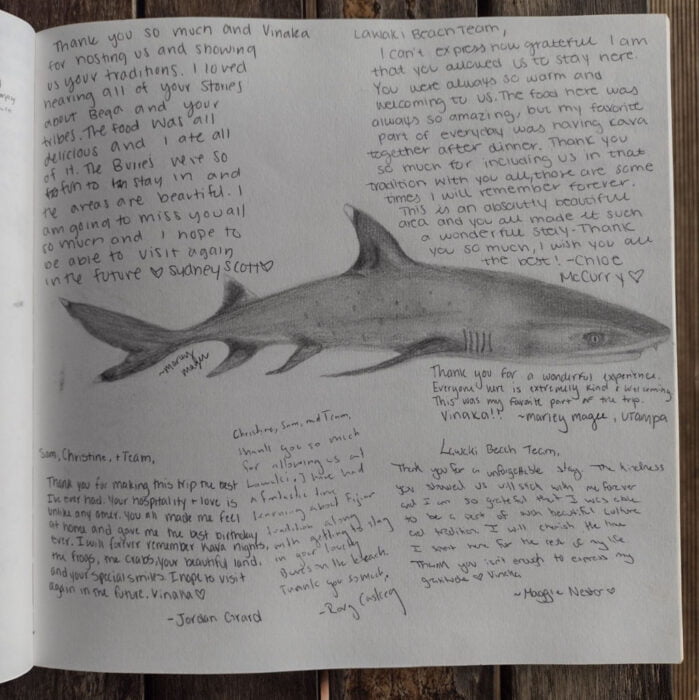 Thank you so much and Vinaka
for hosting us and showing
us your traditions. I loved
hearing all of your stories
about Beqa and your
tribes. The food was all
delicious and I ate all
of it. The Bures were so
fun to stay in and
the areas are beautiful. I
am going to miss you all
so much and I hope to
be able to visit again
in the future ♡ Sydney Scott♡
Lawaki Beach Team,
I can't express how grateful I am
that you allowed us to stay here.
You were always so warm and
welcoming to us. The food here was
always so amazing, but my favorite
part of everyday was having kava
together after dinner. Thank you
so much for including us in that
tradition with you all, those are some
times I will remember forever.
This is an absolutly beautiful
area and you all made it such
a wonderful stay. Thank
you so much, I wish you all
the best! -Chloe
McCurry ♡
~Marley
Magee
Thank you for a wonderful experience.
Everyone here is extremely kind & welcoming.
This was my favorite part of the trip.
Vinaka!! ~Marley Magee, UTampa
Sam, Christine, + Team,
Thank you for making this trip the best
I've ever had. Your hospitality + love is
unlike any other. You all made me feel
at home and gave me the best birthday
ever. I will forever remember Kava nights,
the frogs, the crabs, your beautiful land,
and your special smiles. I hope to visit
again in the future. Vinaka ♡
-Jordan Girard
Christine, Sam, and Team,
Thank you so much
for allowing us at
Lawaki, I have had
a fantastic time
learning about Fijian
tradition along
with getting to stay
in your lovely
Bures on the beach.
Thank you so much,
-Rory
Lawaki Beach Team,
Thank you for a unforgettable stay. The kindness
you showed us will stick with me forever
and I am so grateful that I was able
to be a part of such beautiful culture
and tradition. I will cherish the time
I spent here for the rest of my life
Thank you isn't enough to express my
gratitude ♡ Vinaka
~Maggie Nestor ♡